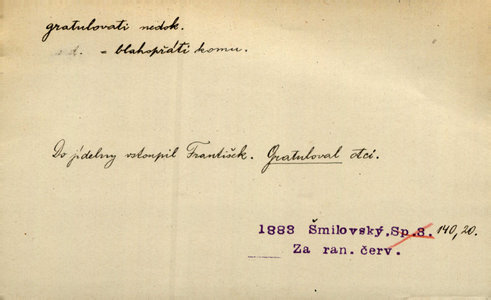 gratulovati nedok.
– blahopřáti komu.
Do jídelny vstoupil František. Gratuloval otci.
1883 Šmilovský, Sp. 8. 140, 20.
Za ran. červ.